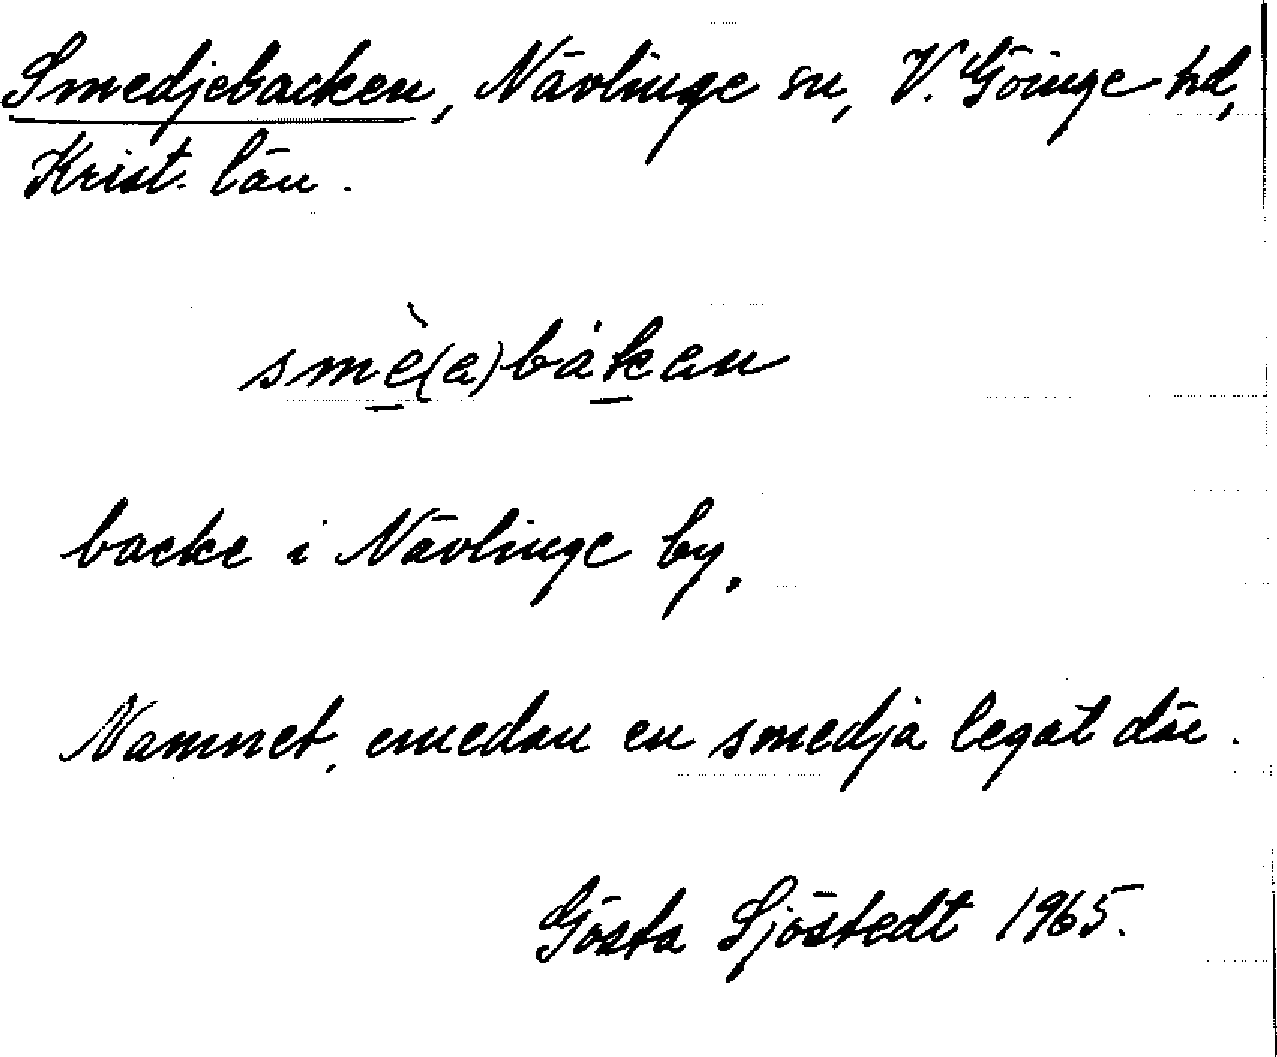 Smedjebacken, Nävlinge sn, V. Göinge hd,
Krist. län.
smè(a)båkan
backe i Nävlinge by.
Namnet, emedan en smedja legat där.
Gösta Sjöstedt 1965.